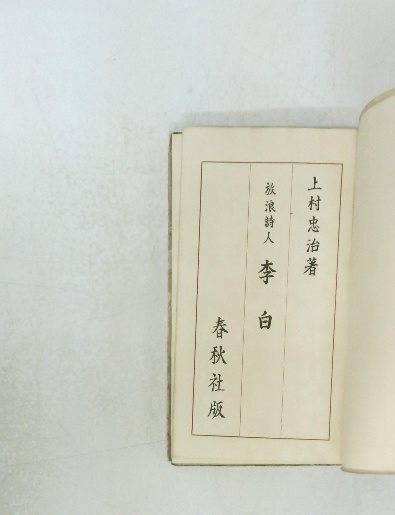 上村忠治著
放浪詩人 李白
春秋社版